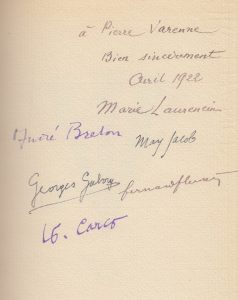 à Pierre Varenne
Bien sincèrement
Avril 1922
Marie Laurencin
André Breton
Max Jacob
Georges Gabory
fernand fleuret
F. Carco